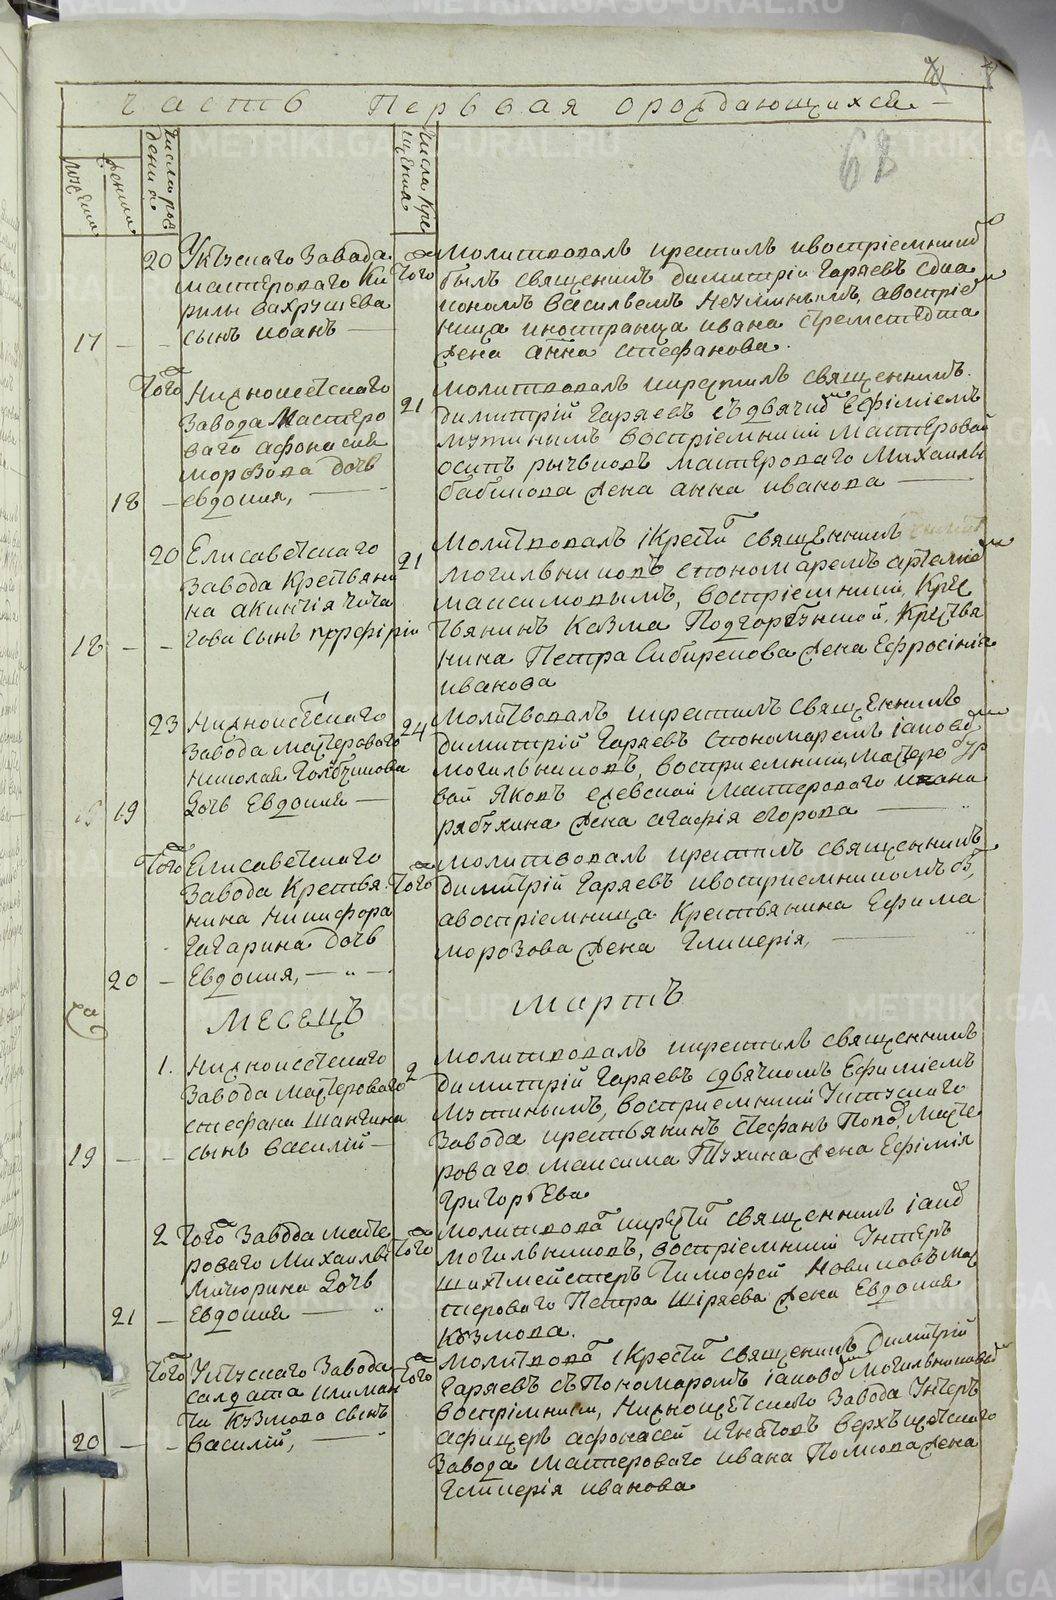 Часть Первая ораждающихся
мужеска
женска
Числа рождения
Числа крещения
68
17
20 Уктускаго Завода
мастероваго Кирилы вахрушева
сынъ иоанъ
того
Молитвовалъ крестилъ ивостріемникъ
былъ священникъ димитрїи Гаряевъ
Васильемъ
ница иностранца ивана
жена анна стефанова.
18
того Нижноисетскаго
Завода Мастероваго афонасия
морозова дочь
евдокия,
21
Молитвовалъ икрестилъ священникъ
димитрїй Гаряевъ Ефімїемъ
воспріемникі мастеровой
осипъ рычковъ мастероваго Михаилы
бабикова жена анна иванова
18
20 Елисаветскаго
Завода Крестьянина акинѳія чичагова сынъ порфирїй
21
Молитвовалъ і Крести священникъ
могильниковъ спономаремъ артемїемъ
максимовымъ, воспріемникі, Крестьянинъ Козма Подгорбунской, Крестьянина Петра Сибирекова жена Ефросінія
иванова
19
23 Нижноисетскаго
Завода мастероваго
николая Голбчикова
дочь Евдокия
24
Молитвовалъ икрестилъ священникъ
димитрїй Гаряевъ спономаремъ іаковомъ
могильниковъ, восприемники, мастеровой Яковъ елевской мастероваго ивана
рябухина жена агафія егорова
20
того Елисаветскаго
Завода Крестьянина Никифора
Гагарина дочь
Евдокия,
того
Молитвовалъ крестилъ священникъ
димитрїй Гаряевъ ивосприемникомъ бы,
авосприемница Крестьянина Ефима
морозова жена Гликерія,
Месецъ мартъ
19
1. Нижноисетскаго
Завода мастероваго
стефана Шангина
сынъ василїй
2
Молитвовалъ икрестилъ священникъ
димитрїй Гаряевъ сдьячкомъ Ефимїемъ
восприемникі Уктускаго
Завода крестьянинъ Стефанъ Поповъ, мастероваго максима Тухина жена Ефімія
григорьева
21
2 Того Завода мастероваго Михаилы
Мичюрина дочь
Евдокия
того
Молитвова икрести священникъ іаков
могильниковъ, воспріемникі Унтеръ
шихтмейстеръ Тимофей Новиковъ мастероваго Петра Ширяева жена Евдокия
Козмова.
20
того Уктускаго Завода
салдата
Кузмова сынъ
василїй,
того
Молитвова і Крести священникъ Димитрїй
Гаряевъ съ Пономаромъ іаковомъ Могильниковым
воспрімники, Нижноисетскаго Завода Унтеръ
афицеръ афонасей игнатовъ верхъисетскаго
Завода мастероваго ивана Полкова жена
Гликерія иванова